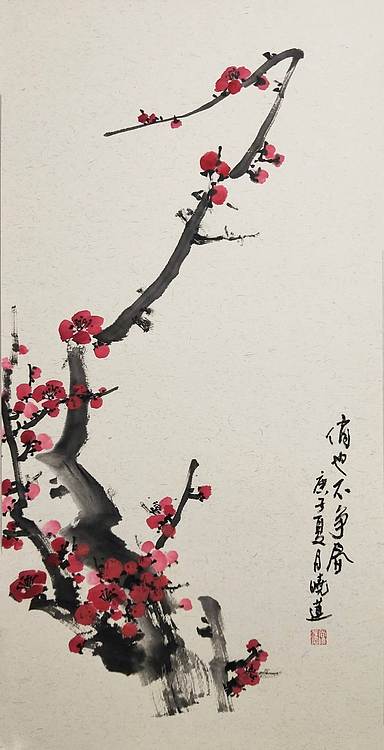 俏也不争春
庚子夏月晓莲